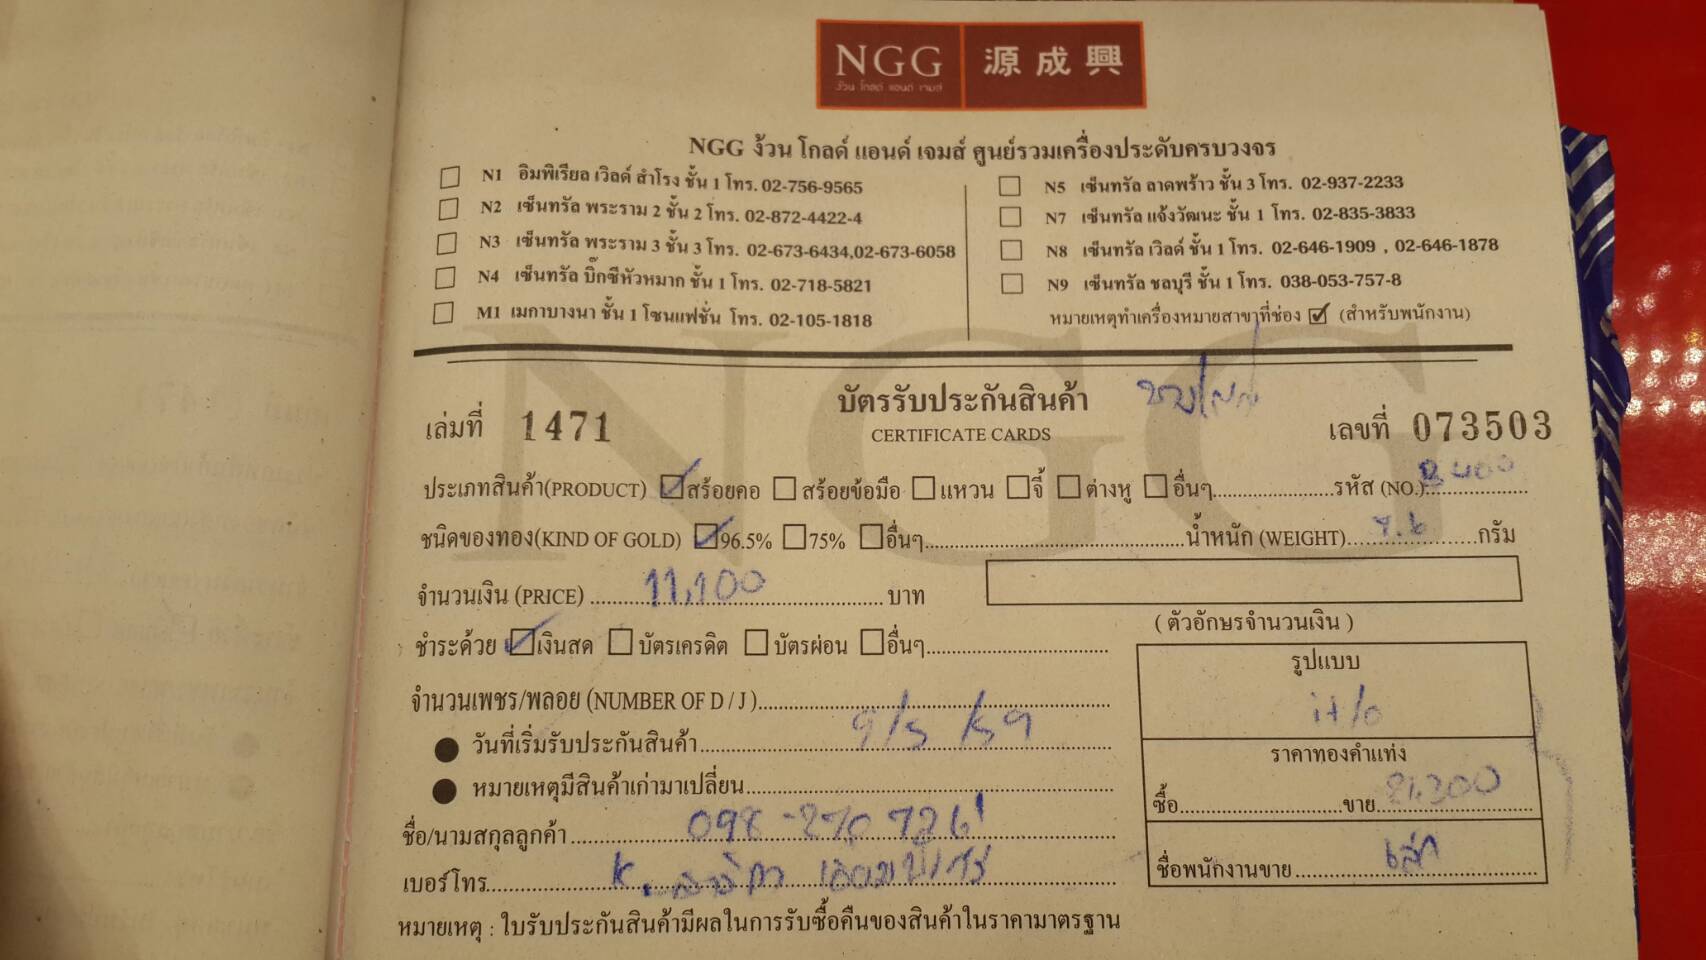 NGG 源成興
ง้วน โกลด์ แอนด์ เจมส์
NGG ง้วน โกลด์ แอนด์ เจมส์ ศูนย์รวมเครื่องประดับครบวงจร
N1 อิมพีเรียล เวิลด์ สำโรง ชั้น 1 โทร. 02-756-9565
N2 เซ็นทรัล พระราม 2 ชั้น 2 โทร. 02-872-4422-4
N3 เซ็นทรัล พระราม 3 ชั้น 3 โทร. 02-673-6434,02-673-6058
N4 เซ็นทรัล บิ๊กซีหัวหมาก ชั้น 1 โทร. 02-718-5821
M1 เมกาบางนา ชั้น 1 โซนแฟชั่น โทร. 02-105-1818
N5 เซ็นทรัล ลาดพร้าว ชั้น 3 โทร. 02-937-2233
N7 เซ็นทรัล แจ้งวัฒนะ ชั้น 1 โทร. 02-835-3833
N8 เซ็นทรัล เวิลด์ ชั้น 1 โทร. 02-646-1909 , 02-646-1878
N9 เซ็นทรัล ชลบุรี ชั้น 1 โทร. 038-053-757-8
หมายเหตุทำเครื่องหมายสาขาที่ช่อง ☑ (สำหรับพนักงาน)
NGG
เล่มที่ 1471 บัตรรับประกันสินค้า เลขที่ 073503
CERTIFICATE CARDS
ประเภทสินค้า(PRODUCT) ☑สร้อยคอ ☐สร้อยข้อมือ ☐แหวน ☐จี้ ☐ต่างหู ☐อื่นๆ........รหัส (NO.)
ชนิดของทอง(KIND OF GOLD) ☑96.5% ☐75% ☐อื่นๆ........น้ำหนัก (WEIGHT)....7.6....กรัม
จำนวนเงิน (PRICE) ....11,100.... บาท
(ตัวอักษรจำนวนเงิน)
ชำระด้วย ☑เงินสด ☐บัตรเครดิต ☐บัตรผ่อน ☐อื่นๆ........
จำนวนเพชร/พลอย (NUMBER OF D / J)........
● วันที่เริ่มรับประกันสินค้า....9/5/59
● หมายเหตุมีสินค้าเก่ามาเปลี่ยน........
ชื่อ/นามสกุลลูกค้า....098-270 7261
เบอร์โทร....K.
รูปแบบ
ราคาทองคำแท่ง
ซื้อ........ขาย....21,300
ชื่อพนักงานขาย....
หมายเหตุ : ใบรับประกันสินค้ามีผลในการรับซื้อคืนของสินค้าในราคามาตรฐาน